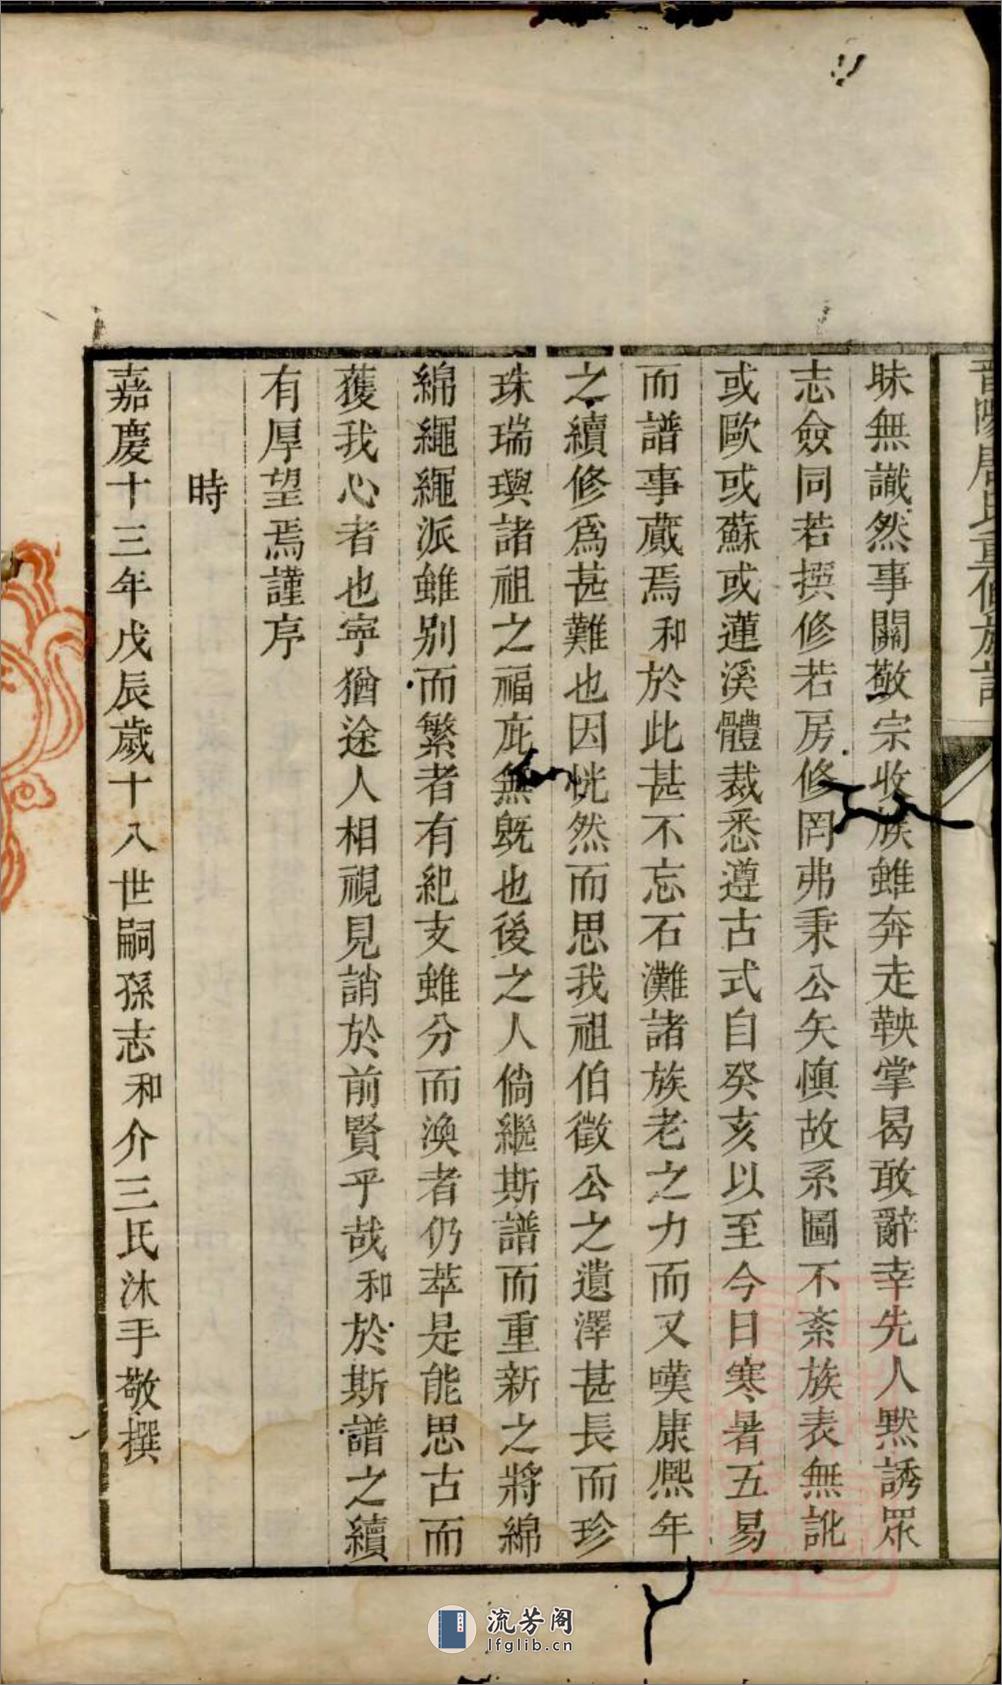 晉陽唐氏重修族譜
昧無識然事關敬宗收族雖奔走鞅掌曷敢辭幸先人默誘眾
志僉同若撰修若房修罔弗秉公矢慎故系圖不紊族表無訛
或歐或蘇或蓮溪體裁悉遵古式自癸亥以至今日寒暑五易
而譜事蕆焉和於此甚不忘石灘諸族老之力而又嘆康熙年
之續修爲甚難也因恍然而思我祖伯徵公之遺澤甚長而珍
珠瑞璵諸祖之福庇無旣也後之人倘繼斯譜而重新之將綿
綿繩繩派雖別而繁者有紀支雖分而渙者仍萃是能思古而
獲我心者也寧猶途人相視見誚於前賢乎哉和於斯譜之續
有厚望焉謹序
時
嘉慶十三年戊辰歲十八世嗣孫志和介三氏沐手敬撰
流芳阁
lfglib.cn